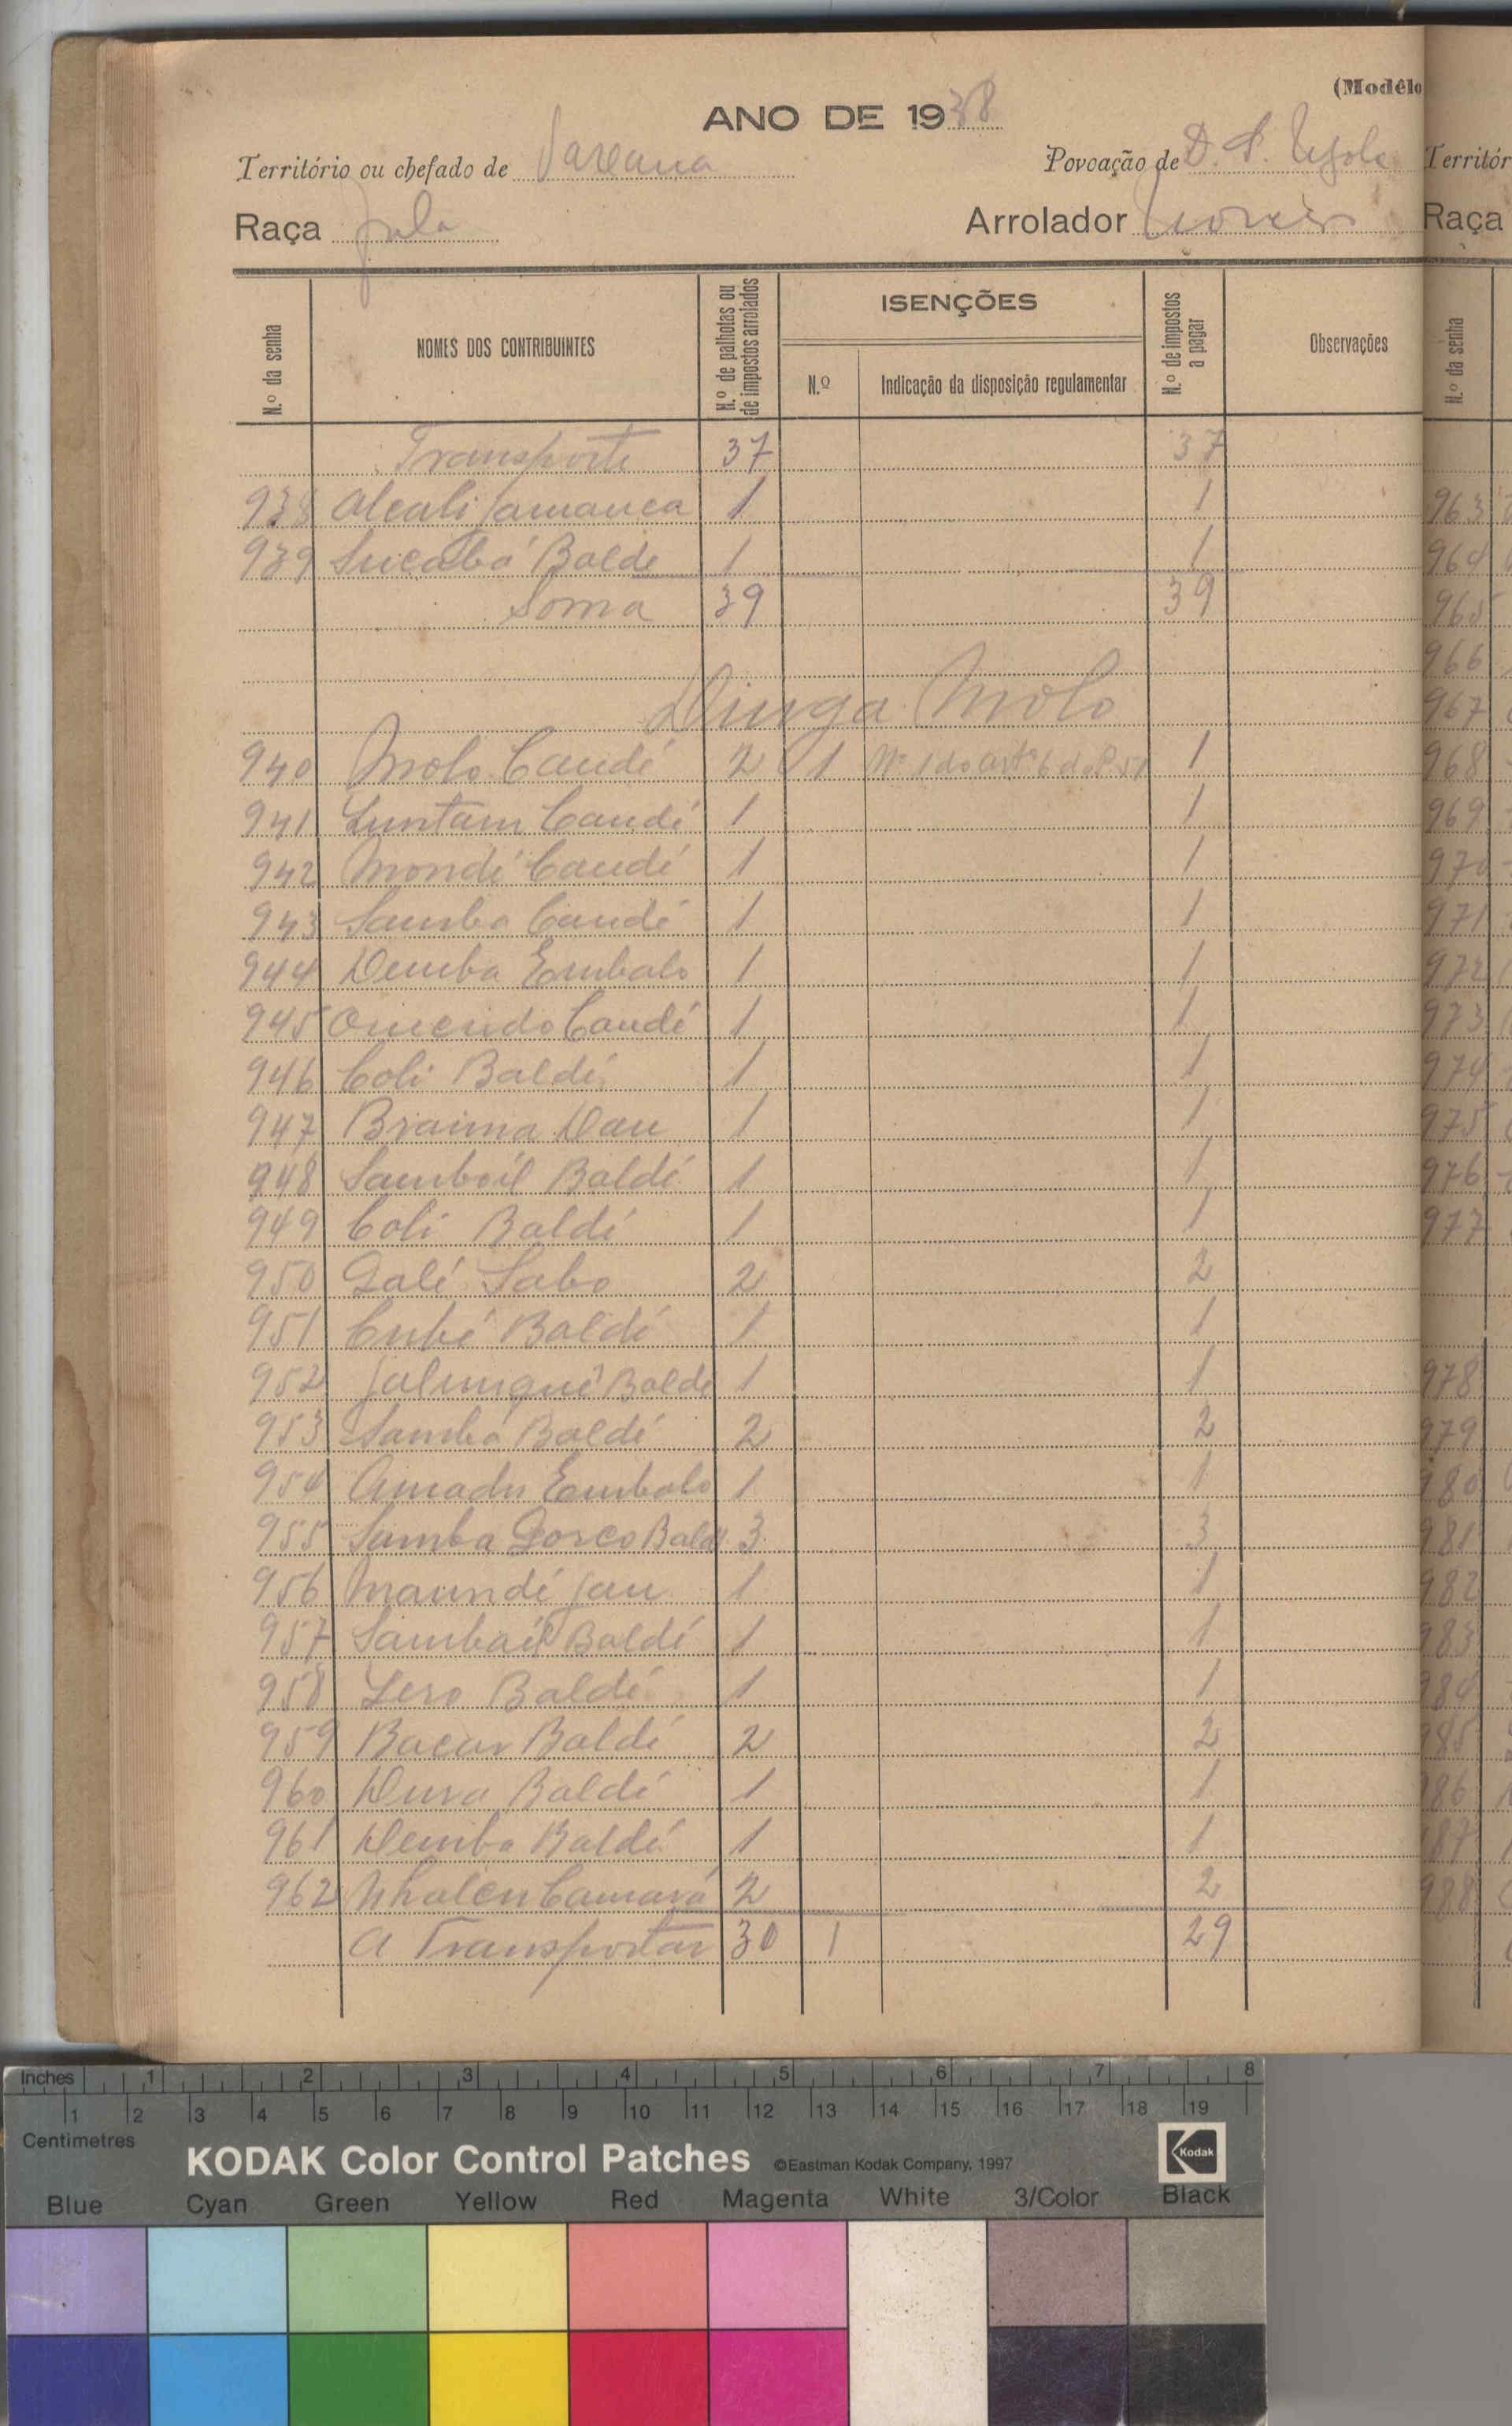 (Modêlo
ANO DE 1938
Território ou chefado de
Povoação de D. S.
Raça Fula
Arrolador
N.º da senha
NOMES DOS CONTRIBUINTES
N.º de palhotas ou de impostos arrolados
ISENÇÕES
N.º
Indicação da disposição regulamentar
N.º de impostos a pagar
Observações
Transporte 37 37
938 Alcali Jamanca 1 1
939 Sucabá Balde 1 1
Soma 39 39
Dinga Molo
940 Molo Candé 2 1 Nº 1 do artº 6 1
941 Luntam Candé 1 1
942 Mondé Candé 1 1
943 Samba Candé 1 1
944 Demba Embalo 1 1
945 Candé 1 1
946 Coli Baldé 1 1
947 Braima Dau 1 1
948 Samboil Baldé 1 1
949 Coli Baldé 1 1
950 Galé Sabo 2 2
951 Cubé Baldé 1 1
952 Balde 1 1
953 Samba Baldé 2 2
954 Amadu Embalo 1 1
955 Samba Baldé 3 3
956 Maundé Jau 1 1
957 Sambail Baldé 1 1
958 Lero Baldé 1 1
959 Bacar Baldé 2 2
960 Dura Baldé 1 1
961 Demba Baldé 1 1
962 Camará 2 2
A Transportar 30 1 29
Territór
Raça
N.º da senha
963
964
965
966
967
968
969
970
971
972
973
974
975
976
977
978
979
980
981
982
983
984
985
986
987
988
Inches 1 2 3 4 5 6 7 8
1 2 3 4 5 6 7 8 9 10 11 12 13 14 15 16 17 18 19
Centimetres
KODAK Color Control Patches ©Eastman Kodak Company, 1997 Kodak
Blue Cyan Green Yellow Red Magenta White 3/Color Black